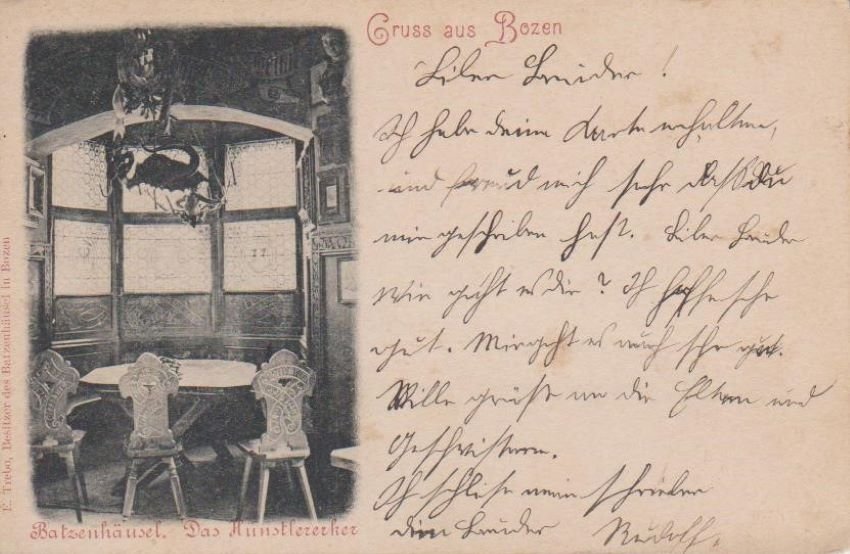 Gruss aus Bozen
Liber Bruder!
Ich habe deine Karte erhalten,
und freud mich sehr dass du
mir geschriben hast. Liber Bruder
Wie geht es dir? Ich hoffe sehr
gut. Mir geht es auch sehr gut.
Wille grüße an die Eltern und
Geschwistern.
Ich schlise mein schreiben
dein Bruder Rudolf.
Batzenhäusel. Das Künstlererker
E. Trebo, Besitzer des Batzenhäusel in Bozen